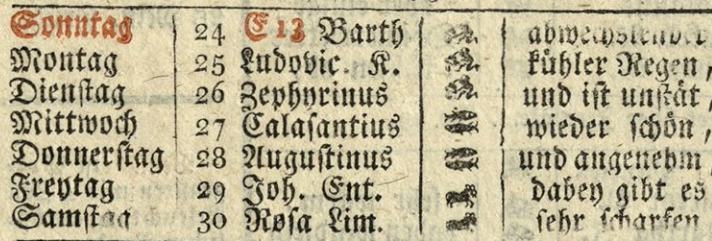 Sonntag 24 E 13 Barth abwechslender
Montag 25 Ludovic. K. kühler Regen,
Dienstag 26 Zephyrinus und ist unstät,
Mittwoch 27 Calasantius wieder schön,
Donnerstag 28 Augustinus und angenehm,
Freytag 29 Joh. Ent. dabey gibt es
Samstag 30 Rosa Lim. sehr scharfen